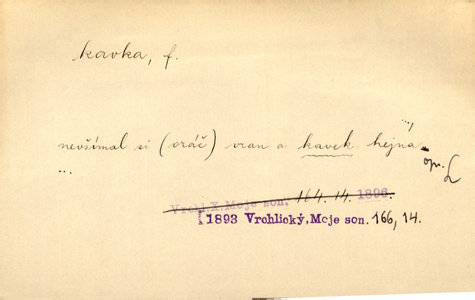 kavka, f.
nevšímal si (oráč) vran a kavek hejna
...
opr.
Vrchl. X. Moje son. 164. 14. 1896.
1893 Vrchlický, Moje son. 166, 14.